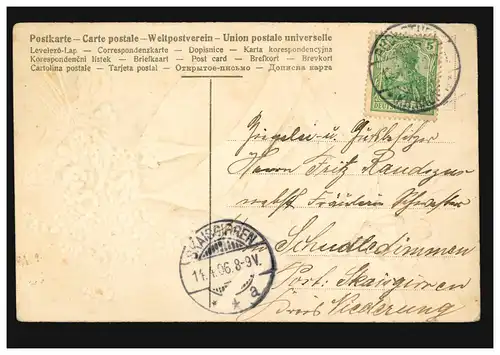 Postkarte — Carte postale — Weltpostverein — Union postale universelle
Levelező-Lap — Correspondenzkarte — Dopisnice — Karta korespondencyjna
Korespondenční lístek — Briefkaart — Post card — Brefkort — Brevkort
Cartolina postale — Tarjeta postal — Открытое-письмо — Дописна карта
5
Ziegelei- u. Gutsbesitzer
Herrn Fritz
nebst Fräulein Schwester
SKAISGIRREN
in
11.4.06.8-9V.
Post: Skaisgirren
* * a
Kreis Niederung